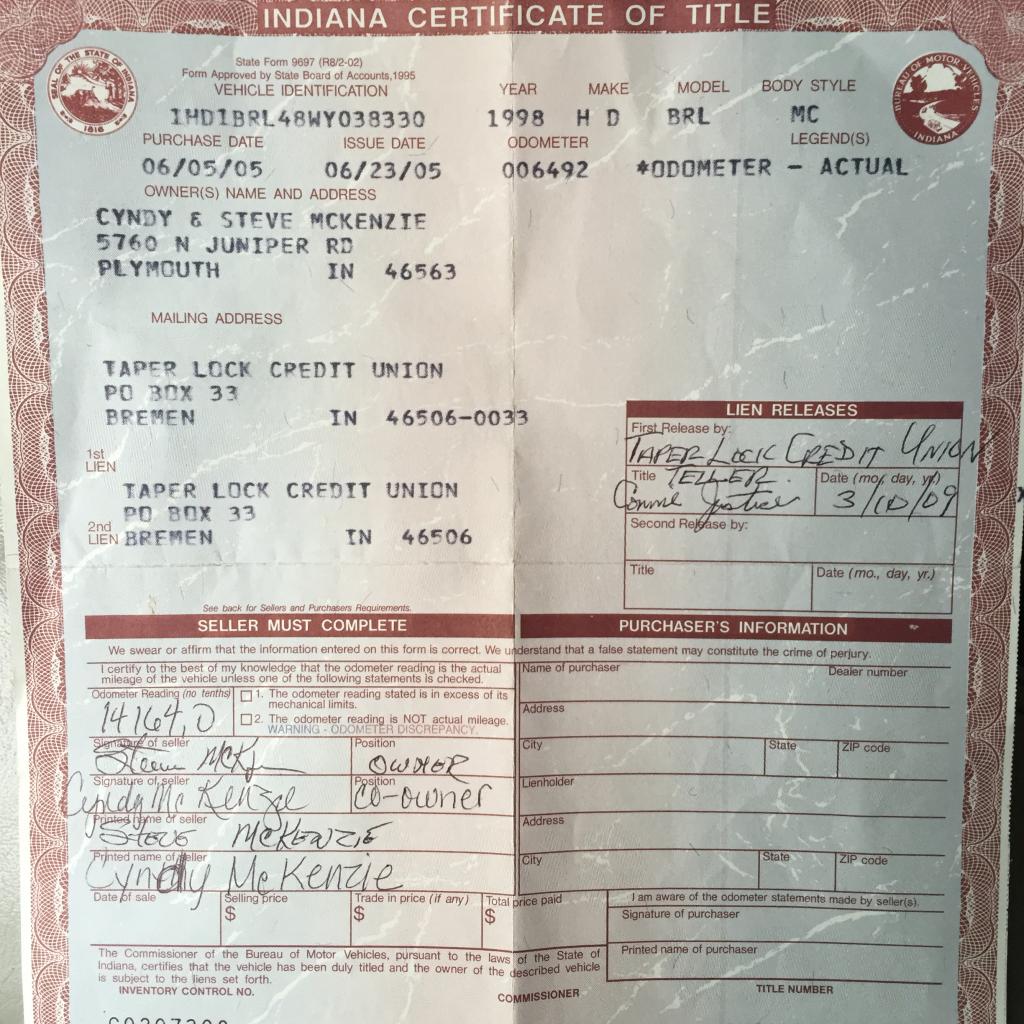 INDIANA CERTIFICATE OF TITLE
SEAL OF THE STATE OF INDIANA
1816
State Form 9697 (R8/2-02)
Form Approved by State Board of Accounts,1995
BUREAU OF MOTOR VEHICLES
INDIANA
VEHICLE IDENTIFICATION YEAR MAKE MODEL BODY STYLE
1HD1BRL48WY038330 1998 H D BRL MC
PURCHASE DATE ISSUE DATE ODOMETER LEGEND(S)
06/05/05 06/23/05 006492 *ODOMETER - ACTUAL
OWNER(S) NAME AND ADDRESS
CYNDY & STEVE MCKENZIE
5760 N JUNIPER RD
PLYMOUTH IN 46563
MAILING ADDRESS
TAPER LOCK CREDIT UNION
PO BOX 33
BREMEN IN 46506-0033
1st
LIEN
TAPER LOCK CREDIT UNION
PO BOX 33
2nd
LIEN
BREMEN IN 46506
LIEN RELEASES
First Release by:
TAPER LOCK CREDIT UNION
Title TELLER Date (mo., day, yr.)
Connie Justice 3/10/09
Second Release by:
Title Date (mo., day, yr.)
See back for Sellers and Purchasers Requirements.
SELLER MUST COMPLETE PURCHASER'S INFORMATION
We swear or affirm that the information entered on this form is correct. We understand that a false statement may constitute the crime of perjury.
I certify to the best of my knowledge that the odometer reading is the actual
mileage of the vehicle unless one of the following statements is checked.
Odometer Reading (no tenths)
14164,0
1. The odometer reading stated is in excess of its
mechanical limits.
2. The odometer reading is NOT actual mileage.
WARNING - ODOMETER DISCREPANCY.
Signature of seller Position
Steve McK OWNER
Signature of seller Position
Cyndy McKenzie Co-owner
Printed name of seller
STEVE MCKENZIE
Printed name of seller
Cyndy McKenzie
Date of sale Selling price Trade in price (if any) Total price paid
$ $ $
Name of purchaser Dealer number
Address
City State ZIP code
Lienholder
Address
City State ZIP code
I am aware of the odometer statements made by seller(s).
Signature of purchaser
Printed name of purchaser
The Commissioner of the Bureau of Motor Vehicles, pursuant to the laws of the State of
Indiana, certifies that the vehicle has been duly titled and the owner of the described vehicle
is subject to the liens set forth.
INVENTORY CONTROL NO. COMMISSIONER TITLE NUMBER